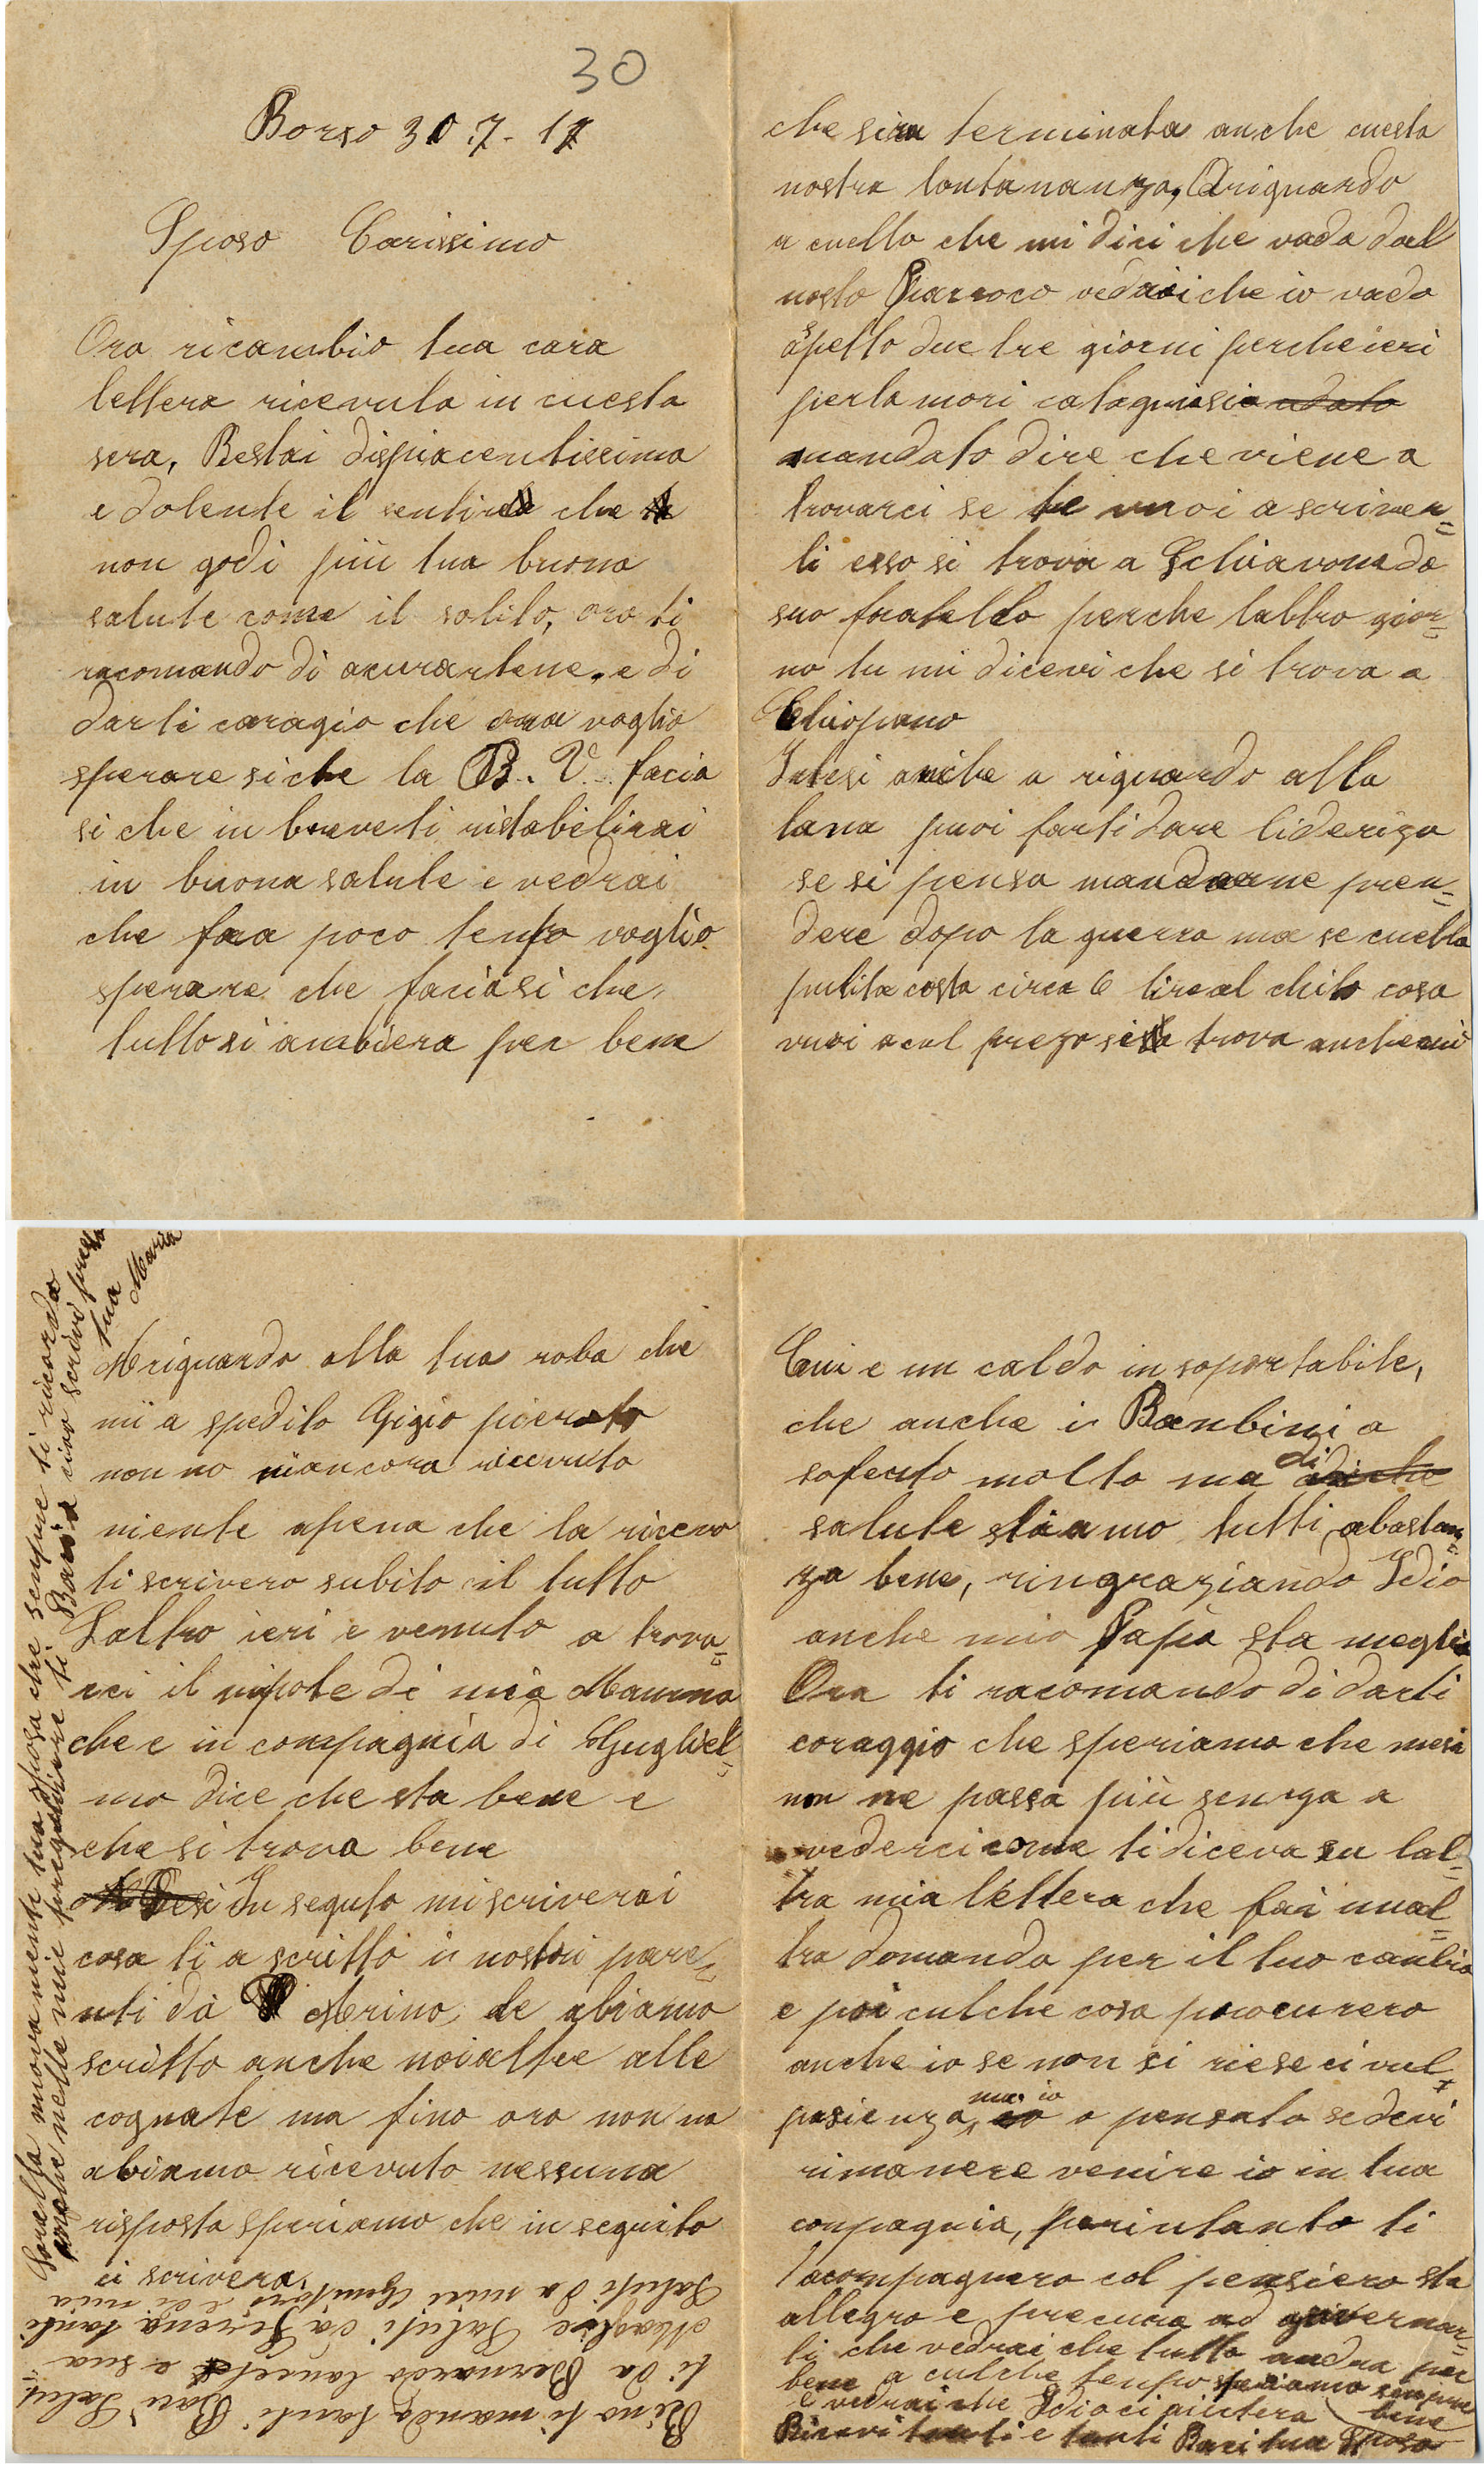 30
Borso 30 7 - 17
Sposo Carissimo
Ora ricambio tua cara
lettera ricevuta in cuesta
sera, Restai dispiacentissima
e dolente il sentire che
non godi più tua buona
salute come il solito, ora ti
racomando di acurartene, e di
darti caragio che ora voglio
sperare siche la B. V. facia
si che in breve ti ristabilirai
in buona salute e vedrai
che fra poco tempo voglio
sperare che faciasi che
tutto si ambiera per bene
che sira terminata anche cuesta
nostra lontananza, Ariguardo
a cuello che mi dici che vada dal
nosto Parroco vedrai che io vado
aspetto due tre giorni perche ieri
mandato dire che viene a
trovarci se te vuoi a scriver=
li esso si trova a Schiavon da
suo fratello perche laltro gior=
no tu mi dicevi che si trova a
Chiopano
Intesi anche a riguardo alla
lana puoi farti dare liderizo
se si pensa mandarne pren=
dere dopo la guerra ma se cuella
pulita costa circa 6 lire al chilo cosa
vuoi a cul prezo si trova anche cui
Ariguardo alla tua roba che
mi a spedito Gigio pierato
non no ancora ricevuto
niente apena che la ricevo
ti scrivero subito il tutto
Laltro ieri e venuto a trova=
rci il nipote di mia Mamma
che e in compagnia di Gugliel=
mo dice che sta bene e
che si trova bene
In seguto mi scriverai
cosa ti a scritto i nostri pare=
nti da Merino, le abiamo
scritto anche noialtre alle
cognate ma fino ora non na
abiamo ricevuto nessuna
risposta speriamo che in seguito
ci scrivera,
Cui e un caldo in soportabile,
che anche i Banbini a
soferto molto ma di
salute stiamo tutti abastan=
za bene, ringraziando Idio
anche mio Papà sta meglio
Ora ti racomando di darti
coraggio che speriamo che mesi
non ne passa più senza a
vederci come ti diceva su lal=
tra mia lettera che fai unal=
tra domanda per il tuo canbio
e poi culche cosa procurero
anche io se non si riese ci vul
pasienza, ma io o pensato se devi
rimanere venire io in tua
conpagnia, perintanto ti
acompagnero col pensiero sta
allegro e precura ad governar=
ti che vedrai che tutto andra per
bene a culche tenpo stiamo senpre bene
e vedrai che Idio ci aiutera
Ricevi tanti e tanti Baci tua Sposa
Rino ti manda tanti Baci Salut=
ti da Bernardo e sua
Moglie Saluti da Gerena tanti
Saluti da miei Genitori e di mia
Sorella nuovamente tua sposa che senpre ti ricorda
anche nelle mie preghiere ti Bacia ciao scrivi presto
tua Maria